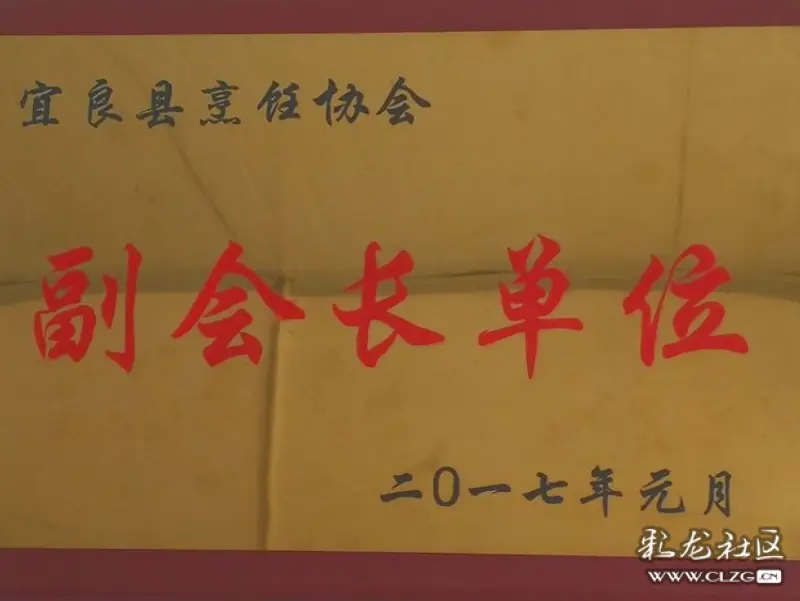 宜良县烹饪协会
副会长单位
二0一七年元月
彩龙社区
WWW.CLZG.CN